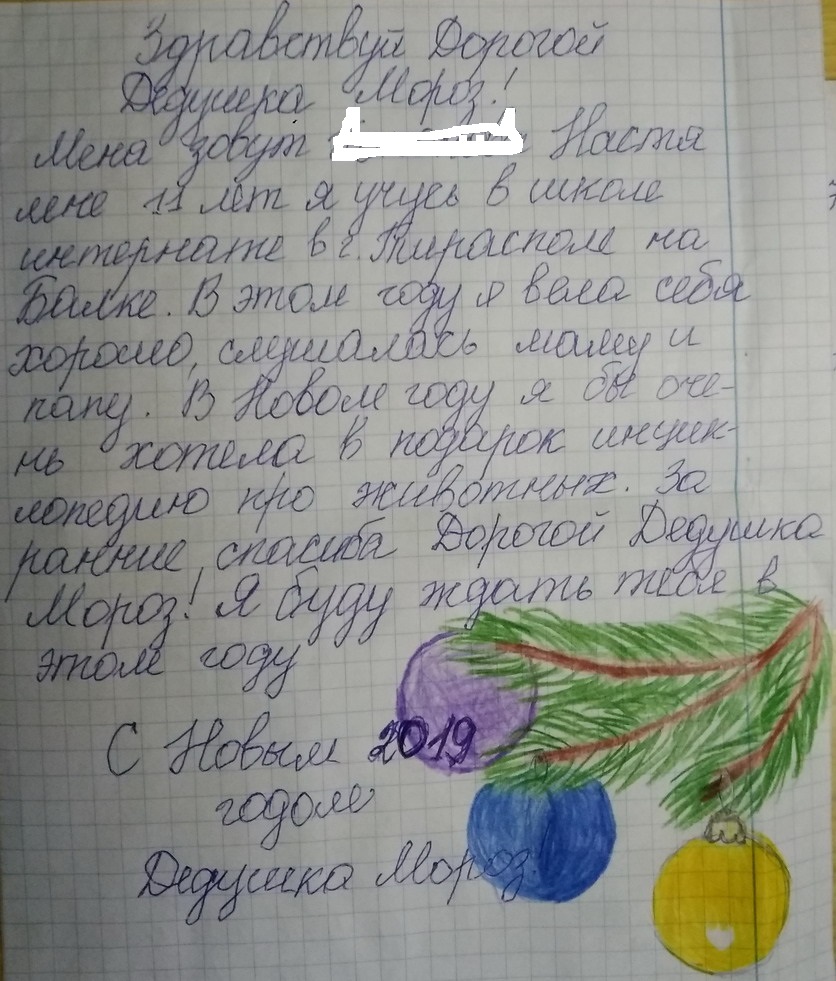 Здравствуй Дорогой
Дедушка Мороз!
Мена зовут Настя
мне 11 лет я учусь в школе
интернате в г. Тирасполе на
Балке. В этом году я вела себя
хорошо, слушалась маму и
папу. В Новом году я бы оче-
нь хотела в подарок инцик-
лопедию про животных. За
ранние спасиба Дорогой Дедушка
Мороз! Я буду ждать тебя в
этом году
С Новым 2019
годом
Дедушка Мороз!